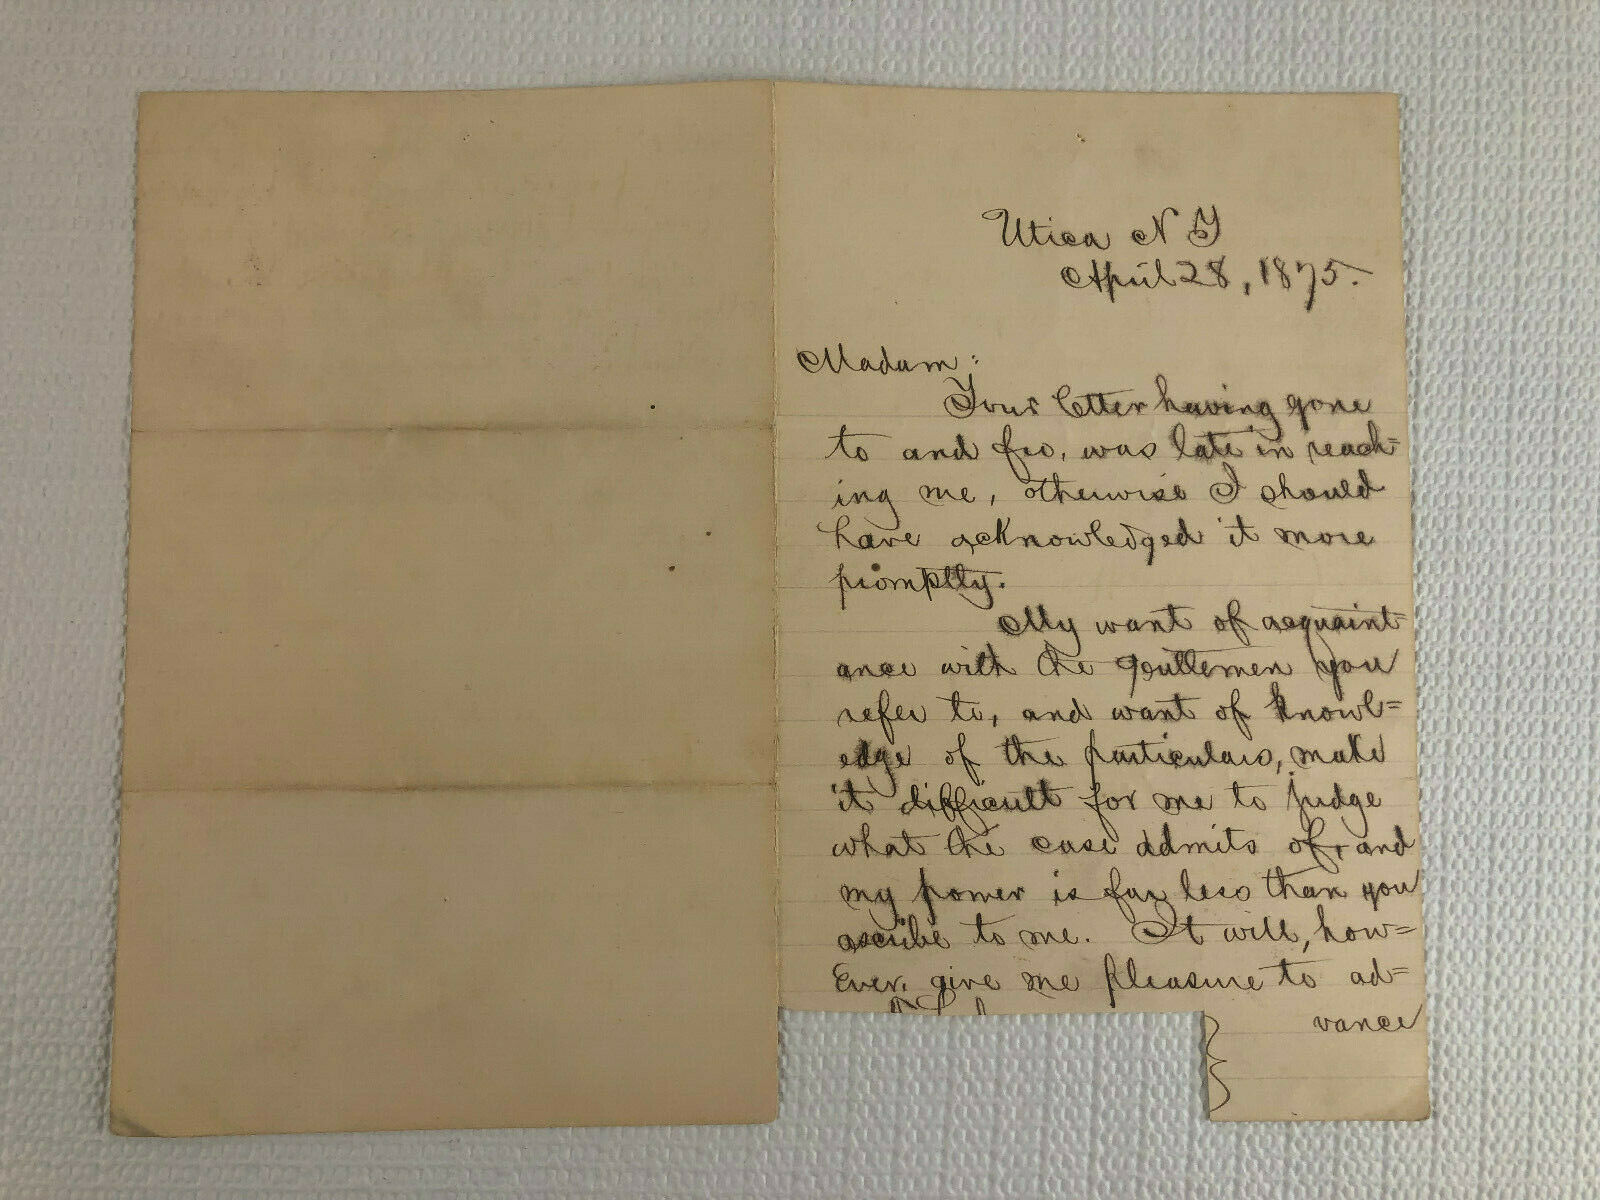 Utica N Y
April 28, 1875.
Madam:
Your letter having gone
to and fro, was late in reach=
ing me, otherwise I should
have acknowledged it more
promptly.
My want of acquaint=
ance with the gentlemen you
refer to, and want of knowl=
edge of the particulars, make
it difficult for me to judge
what the case admits of, and
my power is far less than you
ascribe to me. It will, how=
Ever, give me pleasure to ad=
vance